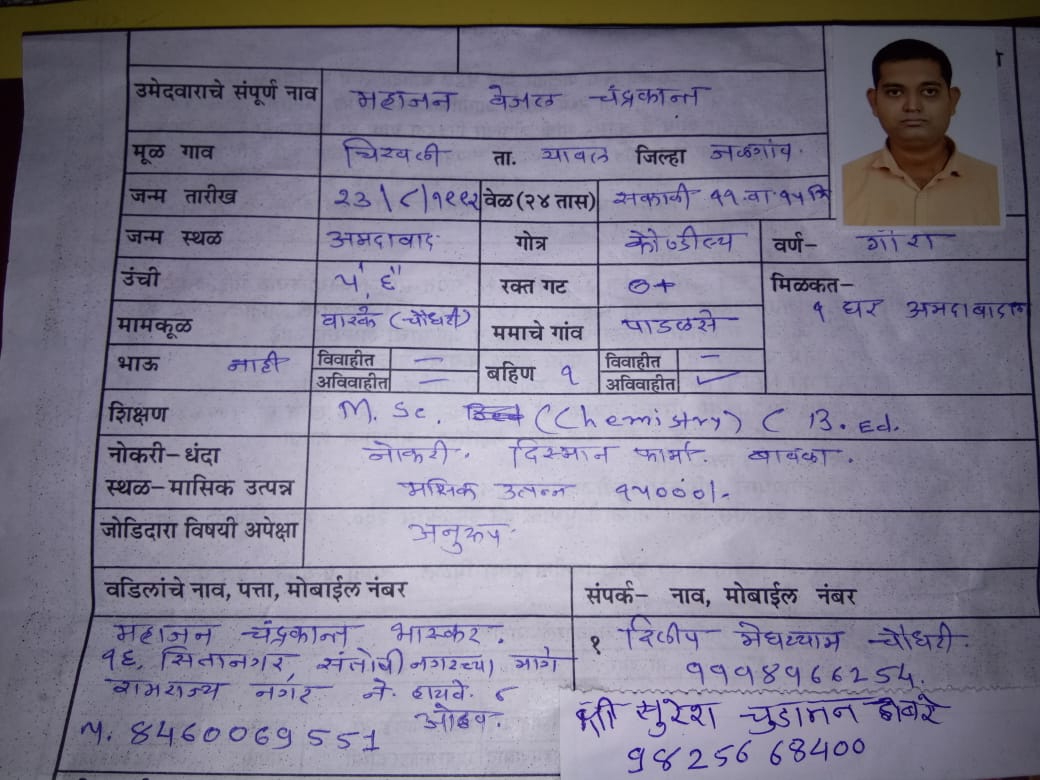 उमेदवाराचे संपूर्ण नाव महाजन वेजल चंद्रकान्त
मूळ गाव चिखली ता. यावल जिल्हा जळगांव.
जन्म तारीख २३/८/१९९२ वेळ (२४ तास) सकाळी ११.वा.१५ मि
जन्म स्थळ अमदावाद गोत्र कौण्डील्य वर्ण- गोरा
उंची ५' ६" रक्त गट O+ मिळकत-
१ घर अमदाबाद
मामकूळ वारके (चौधरी) ममाचे गांव पाडळसे
भाऊ नाही विवाहीत - बहिण १ विवाहीत -
अविवाहीत - अविवाहीत ✓
शिक्षण M. Sc. (Chemistry) ( B. Ed.
नोकरी-धंदा नोकरी. फार्मा.
स्थळ-मासिक उत्पन्न मासिक उत्पन्न १५०००/-
जोडिदारा विषयी अपेक्षा अनुरूप
वडिलांचे नाव, पत्ता, मोबाईल नंबर संपर्क- नाव, मोबाईल नंबर
महाजन चंद्रकान्त भास्कर.
१६, सितानगर, संतोषीनगरच्या मागे
रामराज्य नगर ने. हायवे. ८
ओढव.
M. 8460069551
१ दिलीप मेघश्याम चौधरी.
9998966254.
श्री सुरेश चुडामन झांबरे
98256 68400